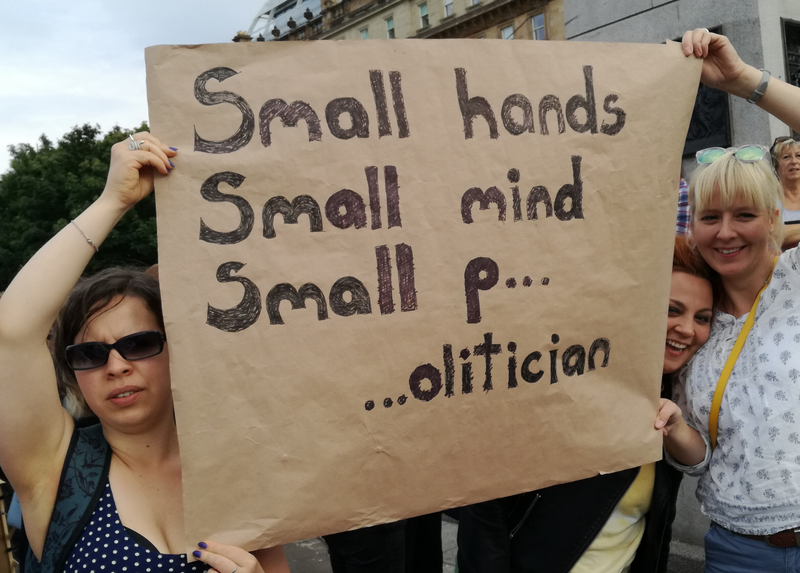 Small hands
Small mind
Small p...
...olitician